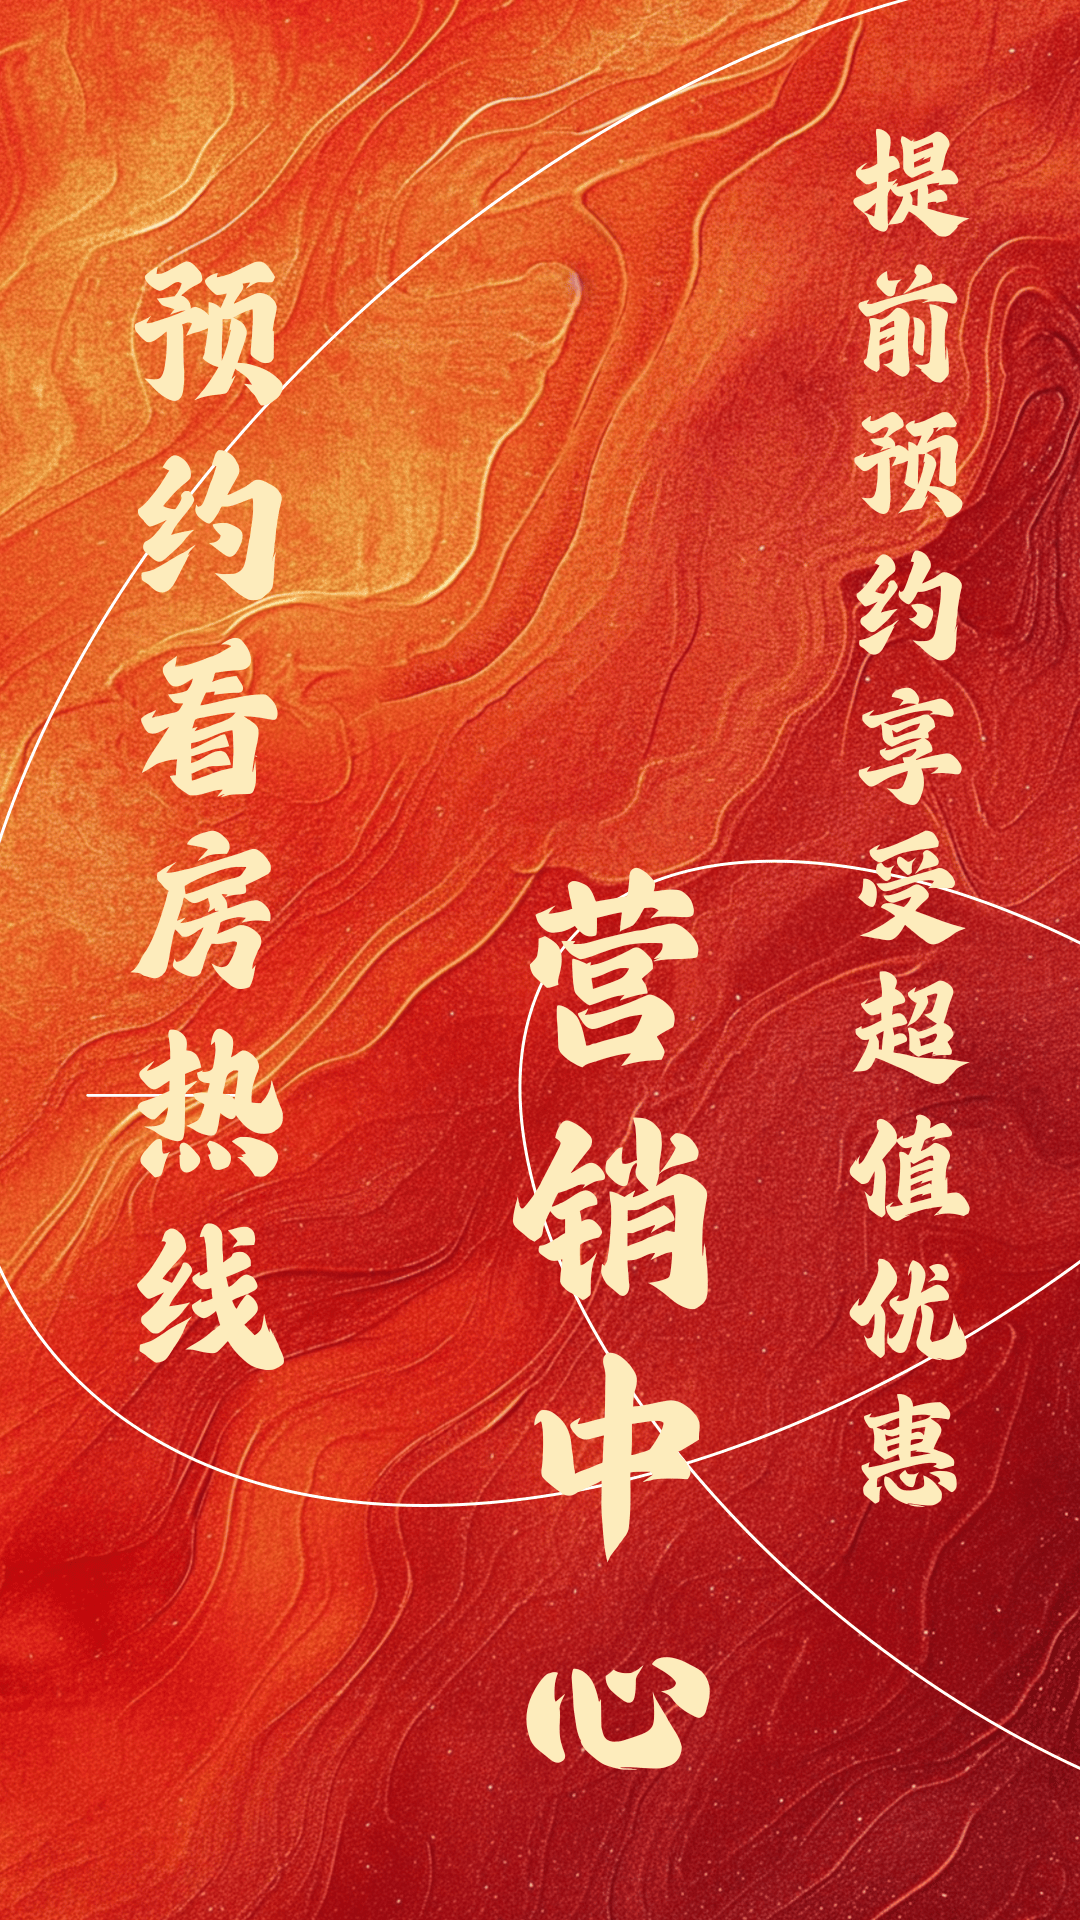 提前预约享受超值优惠
营销中心
预约看房热线